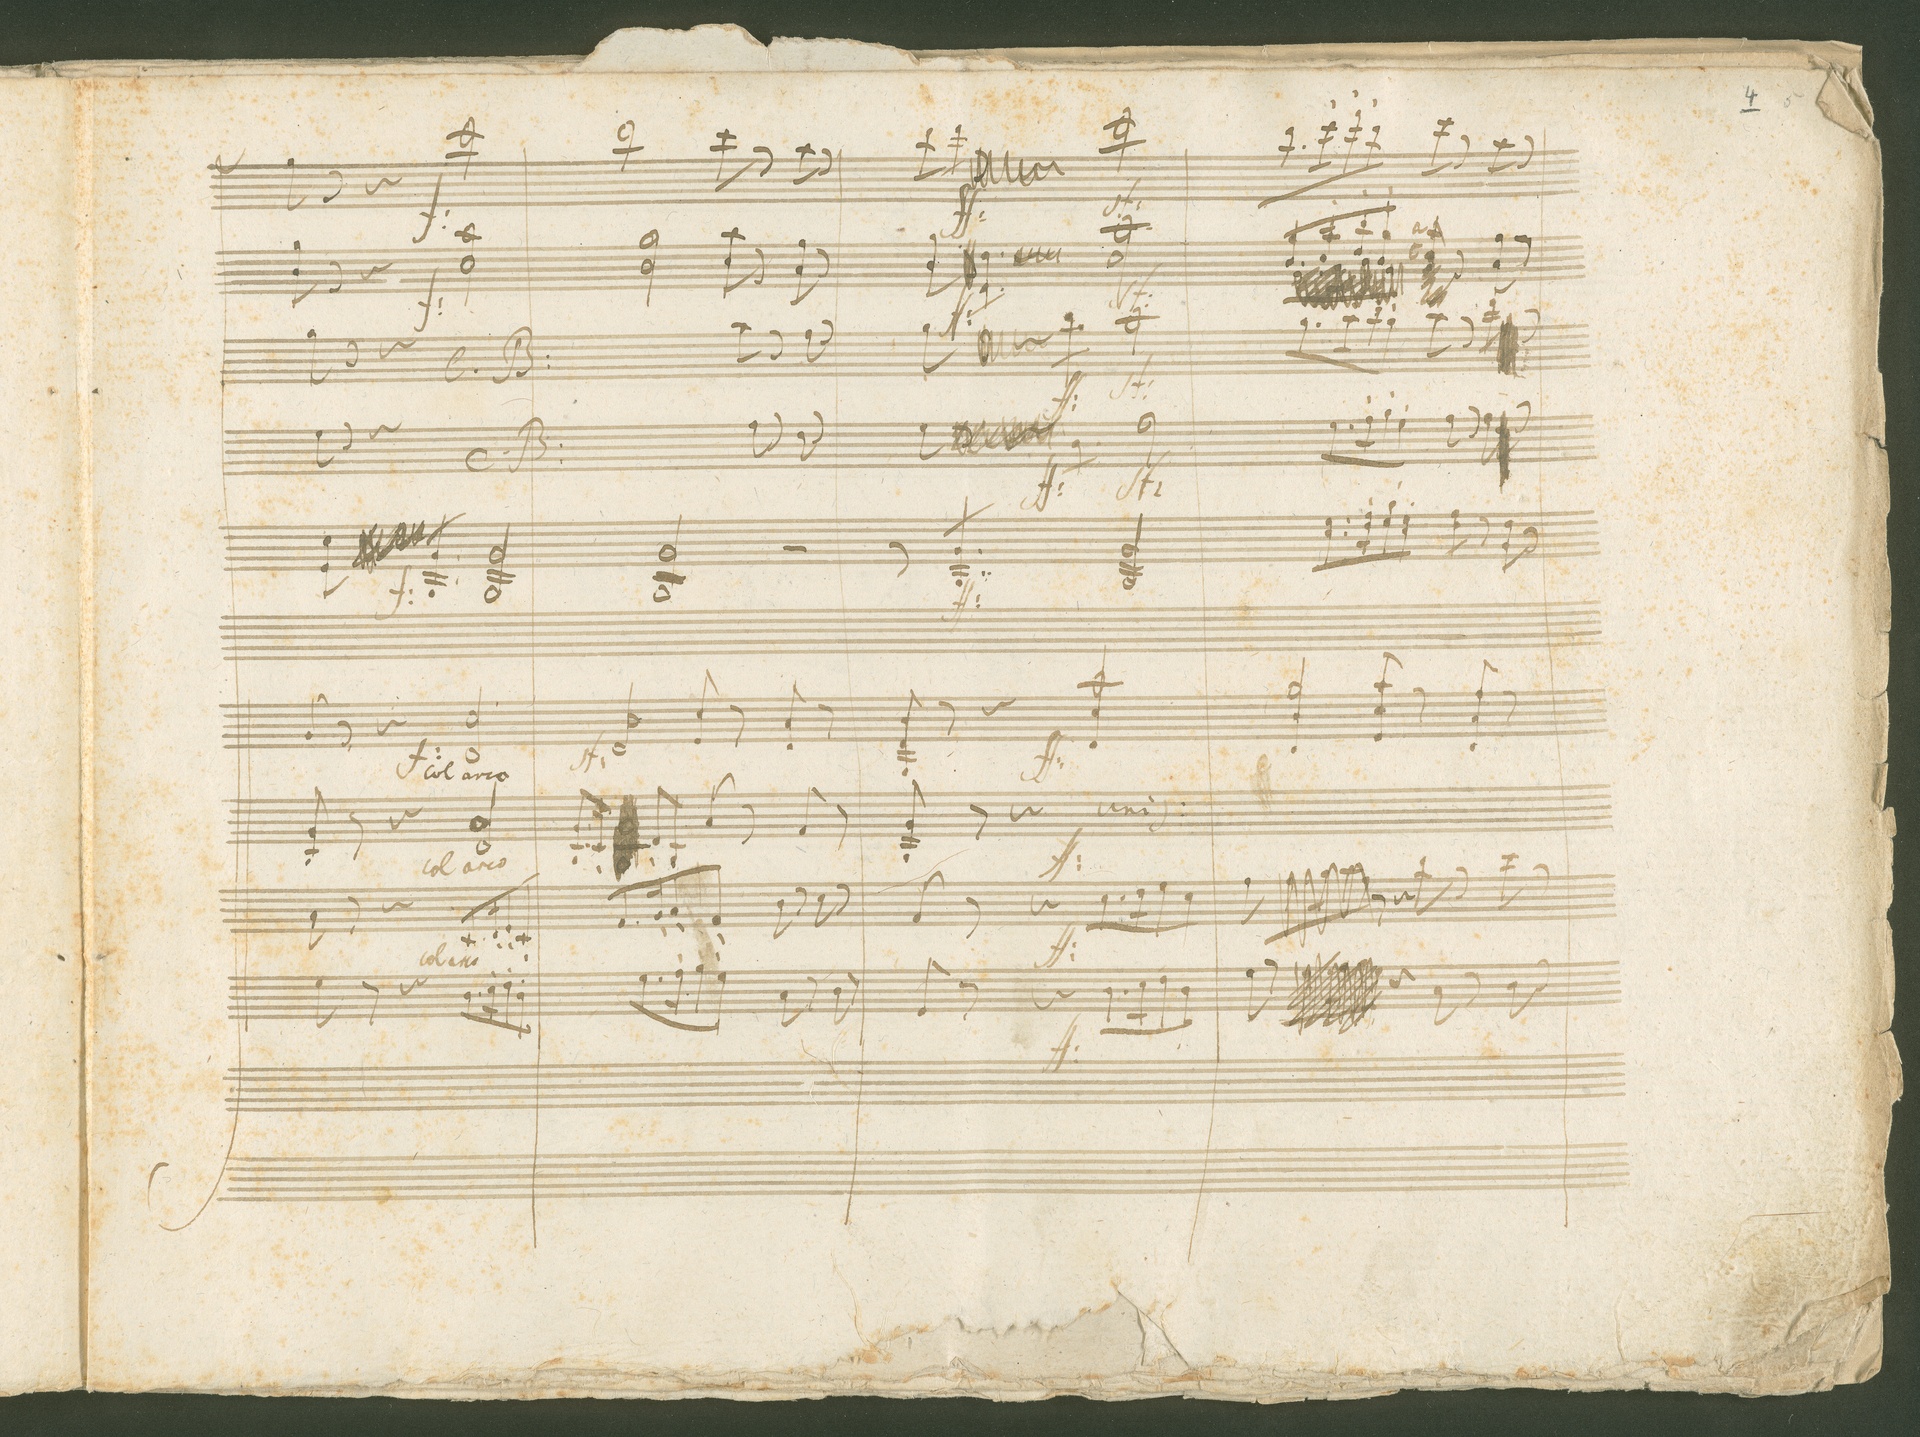 4 5
f:
ff: sf:
f:
ff: sf:
c. B:
ff: sf:
c B:
ff: sf:
f: ff:
f: col arco sf: ff:
unis:
col arco ff:
col arco ff:
ff: